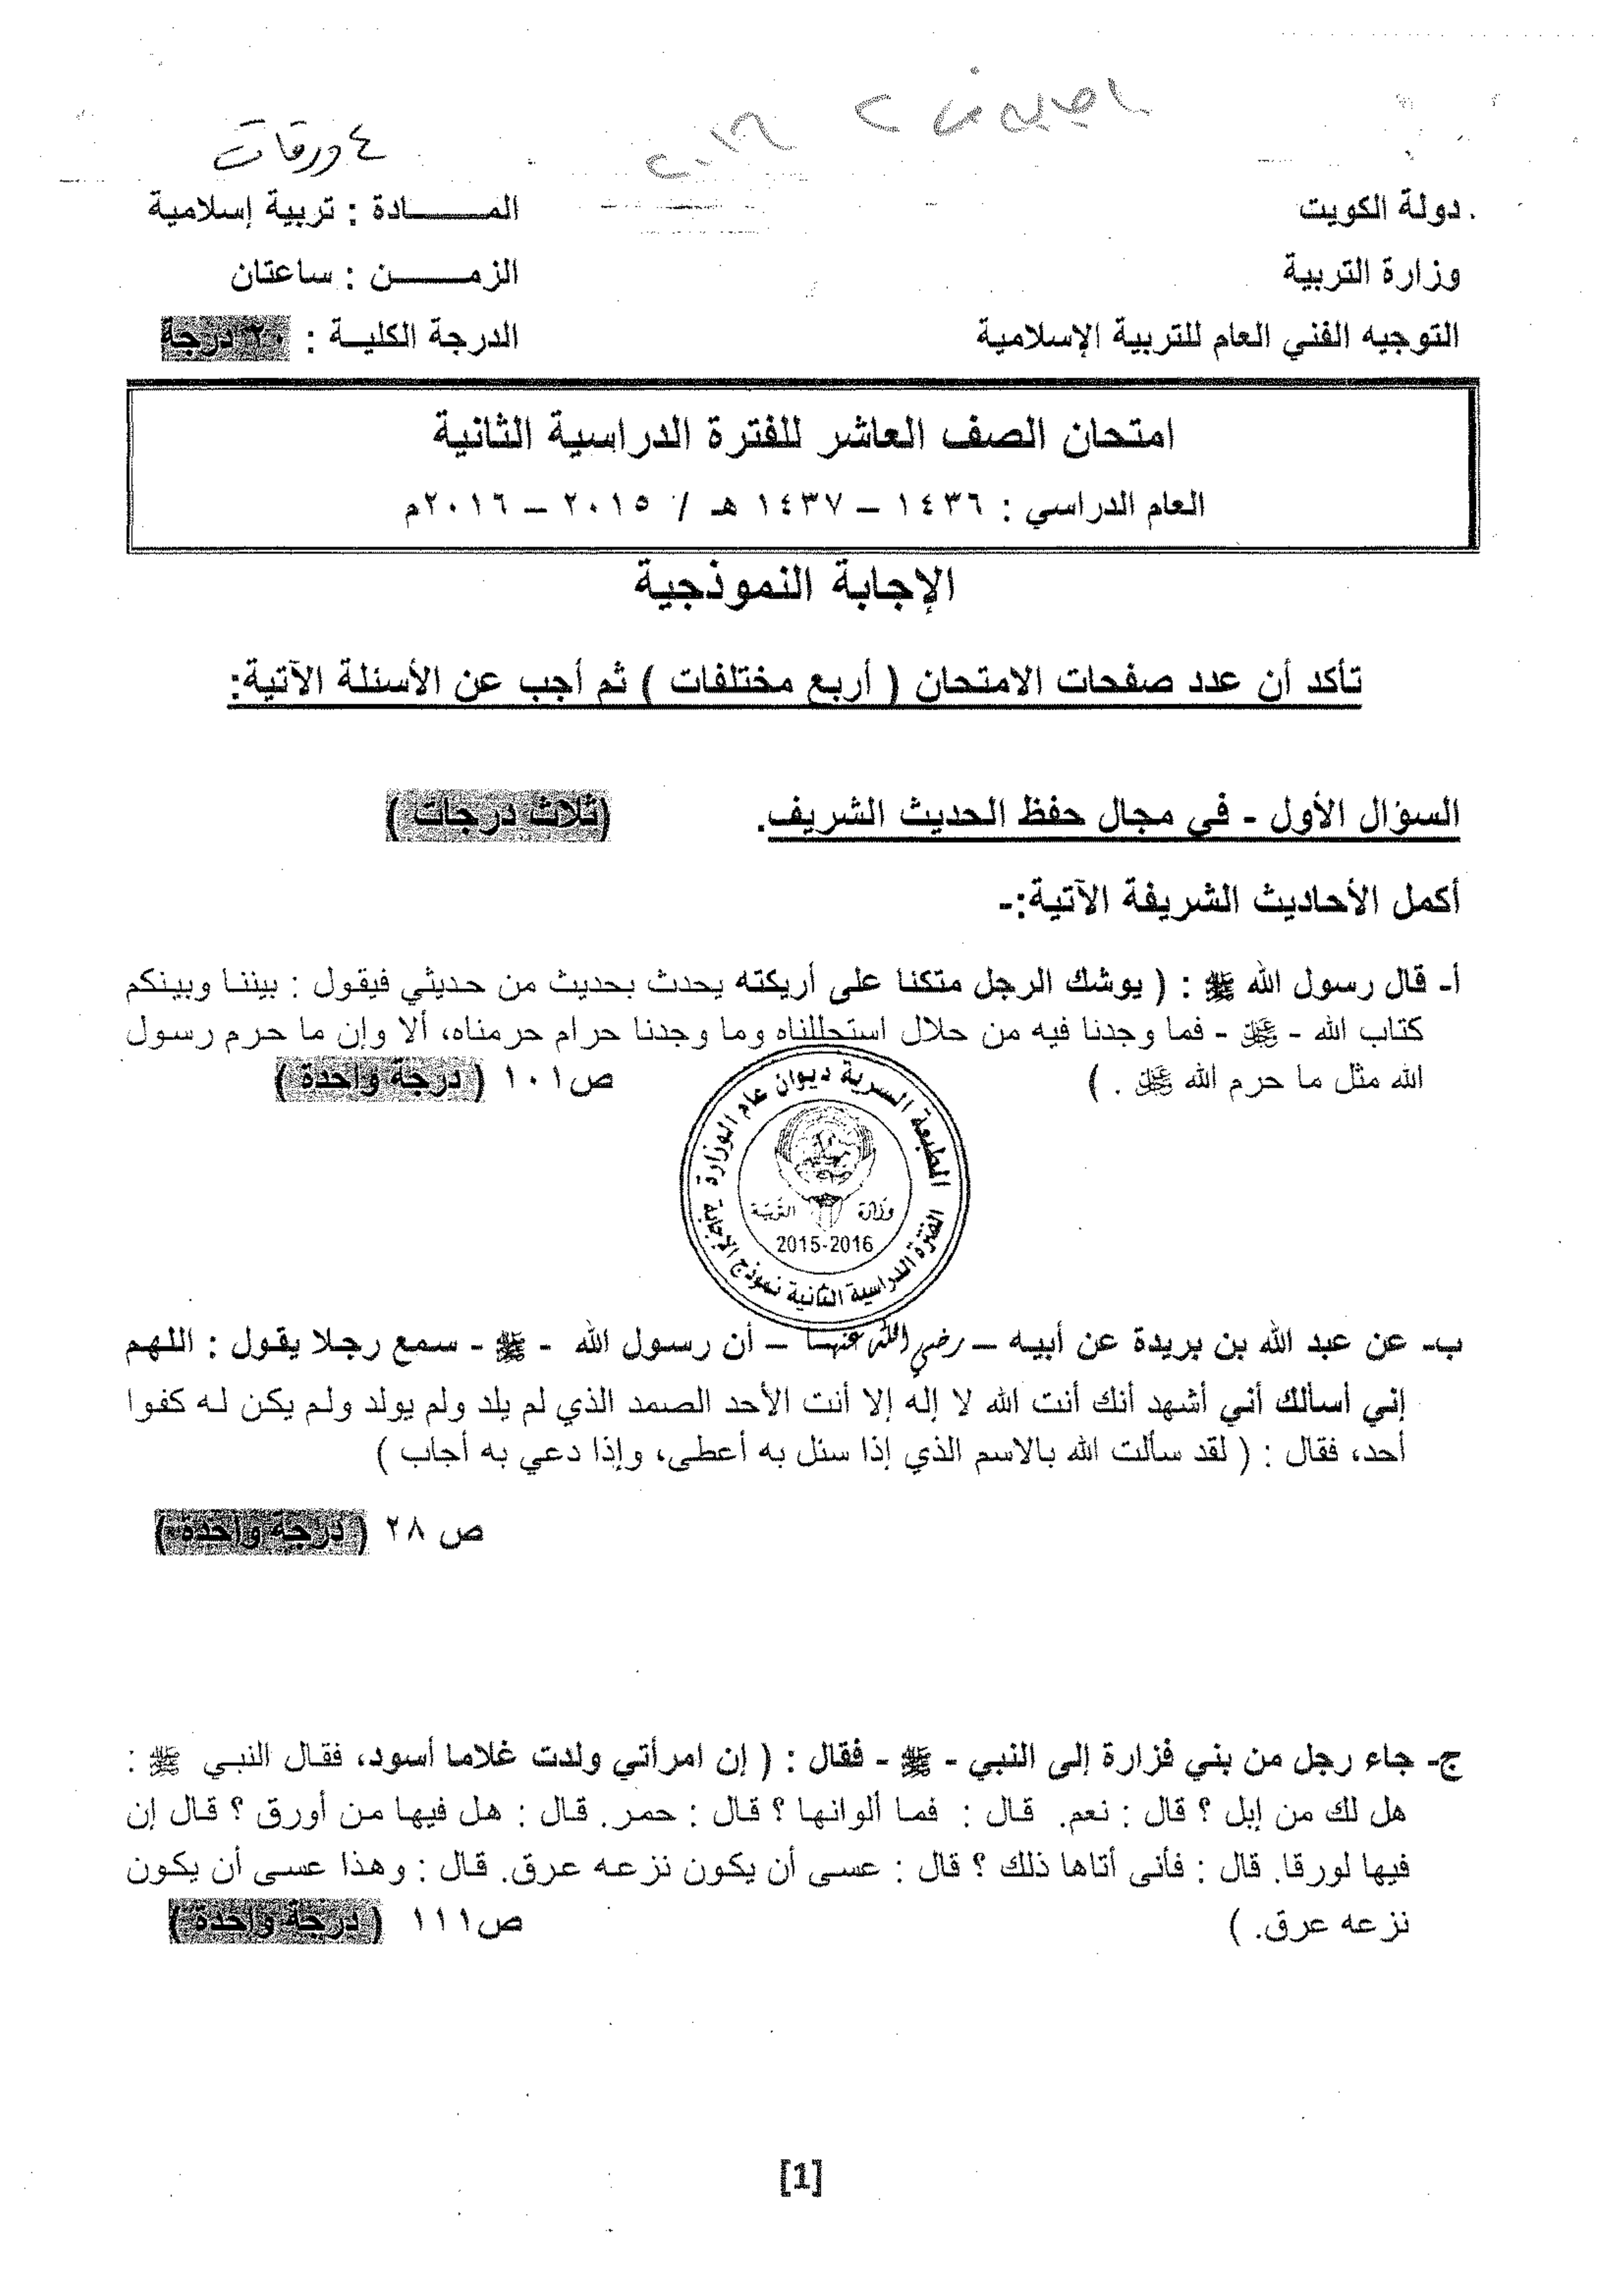 ٤ ورقات
دولة الكويت
المـــــادة : تربية إسلامية
وزارة التربية
الزمـــــن : ساعتان
التوجيه الفني العام للتربية الإسلامية
الدرجة الكليــة : ٢٠ درجة
امتحان الصف العاشر للفترة الدراسية الثانية
العام الدراسي : ١٤٣٦ – ١٤٣٧ هـ / ٢٠١٥ – ٢٠١٦م
الإجابة النموذجية
تأكد أن عدد صفحات الامتحان ( أربع مختلفات ) ثم أجب عن الأسئلة الآتية:
السؤال الأول - في مجال حفظ الحديث الشريف. (ثلاث درجات )
أكمل الأحاديث الشريفة الآتية:-
أ- قال رسول الله ﷺ : ( يوشك الرجل متكنا على أريكته يحدث بحديث من حديثي فيقول : بيننا وبينكم
كتاب الله - ﷻ - فما وجدنا فيه من حلال استحللناه وما وجدنا حرام حرمناه، ألا وإن ما حرم رسول
الله مثل ما حرم الله ﷻ . ) ص١٠١ ( درجة واحدة )
المطبعة السرية ديوان عام الوزارة
وزارة التربية
2015-2016
الفترة الدراسية الثانية نموذج الإجابة
ب- عن عبد الله بن بريدة عن أبيه – رضي الله عنهما – أن رسول الله - ﷺ - سمع رجلا يقول : اللهم
إني أسألك أني أشهد أنك أنت الله لا إله إلا أنت الأحد الصمد الذي لم يلد ولم يولد ولم يكن له كفوا
أحد، فقال : ( لقد سألت الله بالاسم الذي إذا سئل به أعطى، وإذا دعي به أجاب )
ص ٢٨ ( درجة واحدة )
ج- جاء رجل من بني فزارة إلى النبي - ﷺ - فقال : ( إن امرأتي ولدت غلاما أسود، فقال النبي ﷺ :
هل لك من إبل ؟ قال : نعم. قال : فما ألوانها ؟ قال : حمر. قال : هل فيها من أورق ؟ قال إن
فيها لورقا. قال : فأنى أتاها ذلك ؟ قال : عسى أن يكون نزعه عرق. قال : وهذا عسى أن يكون
نزعه عرق. ) ص١١١ ( درجة واحدة )
[1]